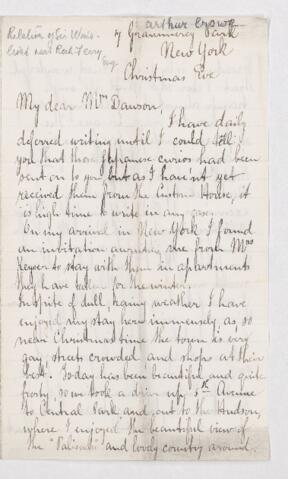 arthur Crowe
Relation of Sir Wm's
lived near Rock Ferry
Eng
7 Grammercy Park
New York
Christmas Eve
My dear Mrs Dawson,
I have daily
deferred writing until I could tell
you that those Japanese curios had been
sent on to you but as I hav'nt yet
received them from the Custom House, it
is high time to write in any case.
On my arrival in New York I found
an invitation awaiting me from Mrs
Keyser to stay with them in apartments
they have taken for the winter.
In spite of dull, rainy weather I have
enjoyed my stay here immensely, as, so
near Christmas time the town is very
gay, streets crowded and shops at their
best. Today has been beautiful and quite
frosty, so we took a drive up 5th Avenue
to Central Park and out to the Hudson,
where I enjoyed the beautiful view of
the "Palisades" and lovely country around.